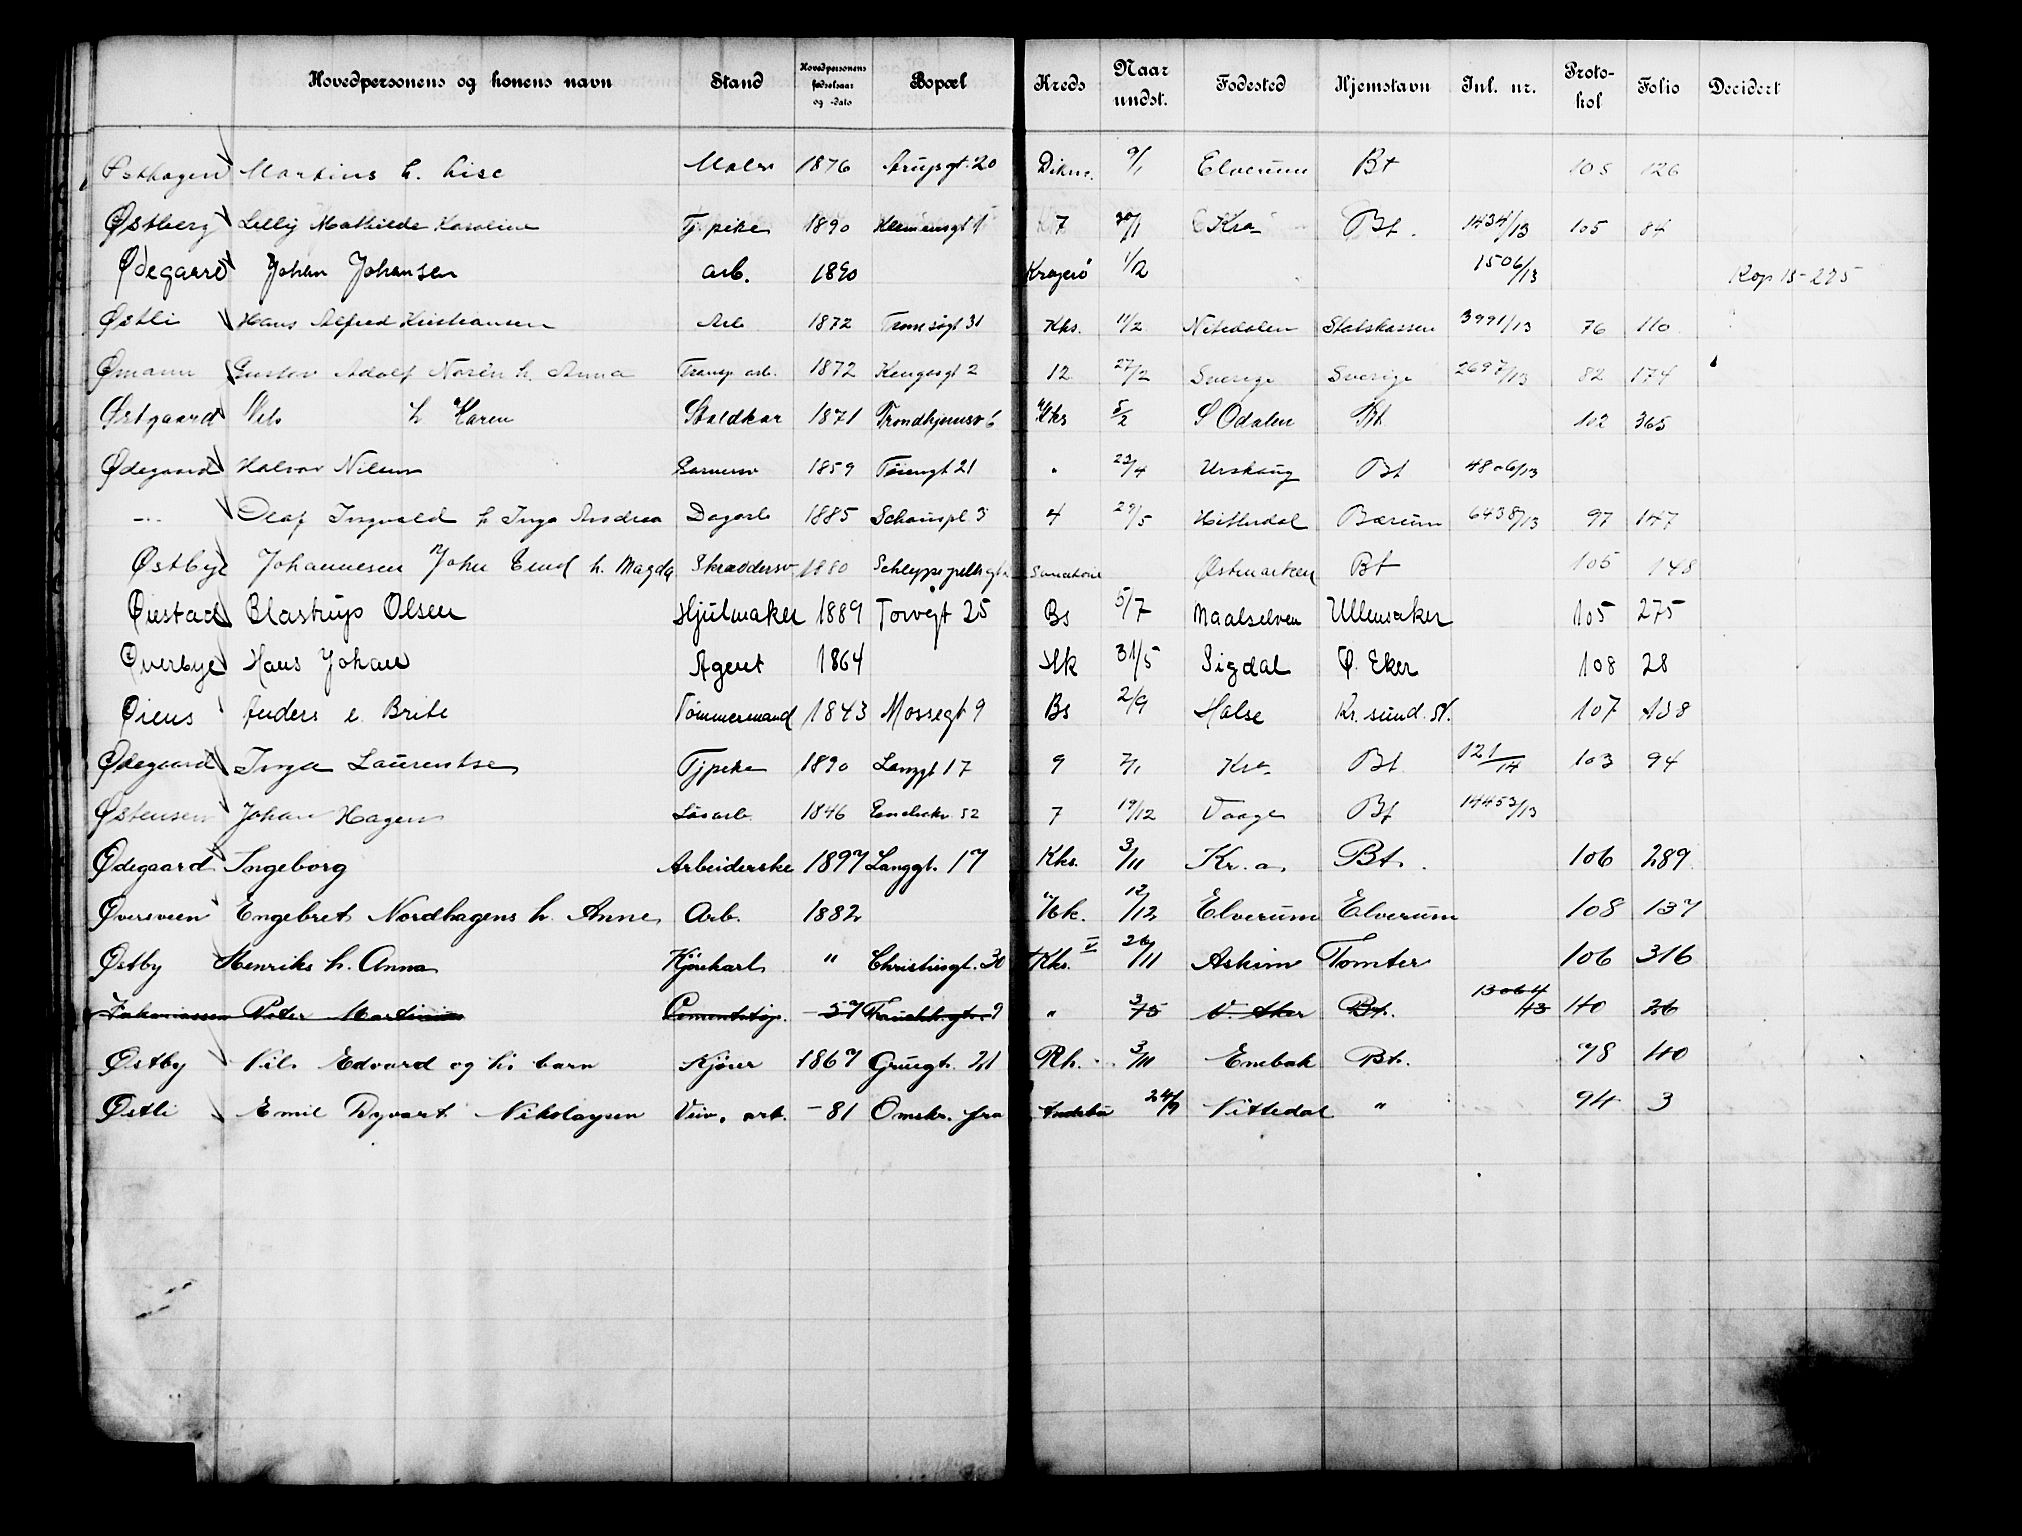 Hovedpersonens og konens navn Stand Hovedpersonens fødselsaar og -dato Bopæl Kreds Naar undst. Fødested Hjemstavn Inl. nr. Protokol Folio Decidert
Østhagen Martins h. Lise Maler 1876 Arupsgt. 20 9/1 Elverum Bt 105 126
Østberg Lilly Mathilde Karoline Tj. pike 1890 Klemensgt 1 7 30/1 Kra Bt. 1434/13 105 84
Ødegaard Johan Johansen arb. 1890 Kragerø 1/2 1506/13 Kop 15-275
Østli Hans Alfred Kristiansen Arb 1872 Tromsøgt 31 Kks. 11/2 Nitedalen Statskassen 3991/13 76 110
Ømann Gustav Adolf Norén h. Anna Transp. arb. 1872 Kongesgt 2 12 27/2 Sverige Sverige 2697/13 82 174
Østgaard Nils h Karen Staldkar 1871 Trondhjemsv 6 Kks 5/2 S Odalen Bt. 102 365
Ødegaard Halvor Nilsen 1859 Tøiengt 21 " 23/4 Urskoug Bt 4806/13
-"- Olaf Ingvald h Inga Andrea Dagarb 1885 Schouspl 3 4 29/5 Hitterdal Bærum 6438/13 97 147
Østbye Johannesen John Emil h. Magda Skræddersv 1880 Schleppegrellsgt Østmarken Bt 105 148
Øiestad Blastrup Olsen Hjulmaker 1889 Torvgt 25 Bs 5/7 Maalselven Ullensaker 105 275
Øverbye Hans Johan Agent 1864 Hk 31/5 Sigdal Ø. Eker 108 28
Øiens Anders e. Brite Tømmermand 1843 Mossegt 9 Bs 2/9 Halse Kr. sund. N. 107 138
Ødegaard Inga Laurentse Tjpike 1890 Langgt 17 9 7/1 Kra Bt. 121/14 103 94
Østensen Johan Hagen Løsarb. 1846 52 7 19/12 Vaage Bt 14453/13
Ødegaard Ingeborg Arbeiderske 1897 Langgt. 17 Kks. 3/11 Kr.a. Bt. 106 289
Øversveen Engebret Nordhagens h. Anne Arb. 1882 Hk. 12/12 Elverum Elverum 108 137
Østby Henriks h. Anna Kjørekarl " Christiesgt. 30 Kks. V 26/11 Askim Tomter 106 316
Zakariassen Peter Martinius Cementstøp. -57 9 " 3/5 V. Aker Bt. 13064/13 40 26
Østby Nils Edvard og h's barn Kjører 1867 Grügt. 21 Rh. 3/11 Enebak Bt. 78 40
Østli Emil Dyvart Nikolaysen Veiv. arb. -81 Omskr. fra Andebu 24/9 Nittedal " 94 3